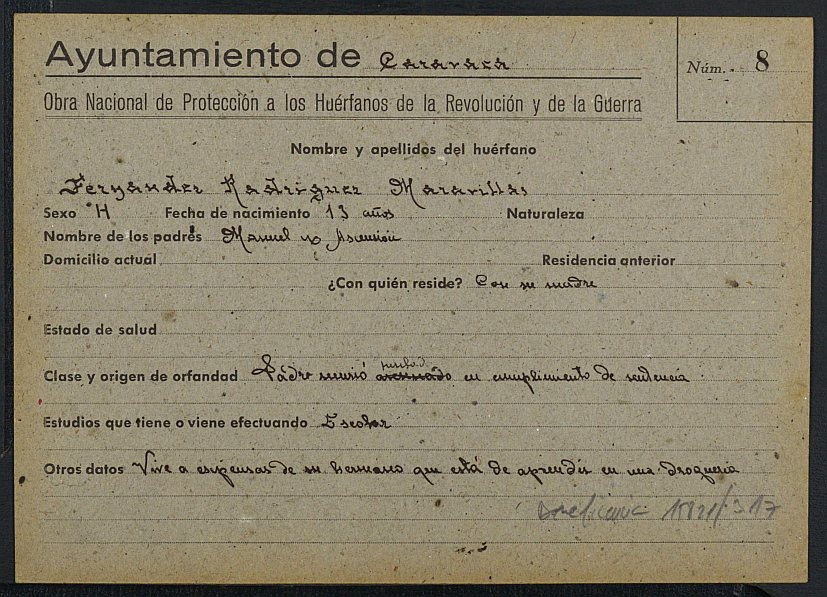 Ayuntamiento de Caravaca
Núm. 8
Obra Nacional de Protección a los Huérfanos de la Revolución y de la Guerra
Nombre y apellidos del huérfano
Fernandez Rodriguez Maravillas
Sexo H Fecha de nacimiento 13 años Naturaleza
Nombre de los padres Manuel y Ascensión
Domicilio actual Residencia anterior
¿Con quién reside? Con su madre
Estado de salud
fusilado
Clase y origen de orfandad Padre murió en cumplimiento de sentencia
Estudios que tiene o viene efectuando Escolar
Otros datos Vive a espensas de su hermano que está de aprendiz en una drogueria